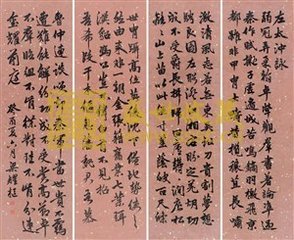 左太冲詠
弱冠弄柔翰卓犖觀群書著論準過
秦作賦擬子虛邊城苦鳴鏑羽檄飛京
都雖非甲冑士疇昔覽穰苴長嘯
激清風志若無東吳鉛刀貴一割夢想
騁良圖左眄澄江湘右盼定羌胡功
成不受爵長揖歸田廬鬱鬱澗底松
世冑躡高位英俊沈下僚地勢使之
然由來非一朝金張藉舊業七葉珥
漢貂馮公豈不偉白首不見招
吾希段干木偃息藩魏君吾慕
魯仲連談笑卻秦軍當世貴不羈
遭難能解紛功成恥受賞高節卓
不群臨組不肯紲對珪寧肯分連
璽耀前庭 癸酉夏六月吳